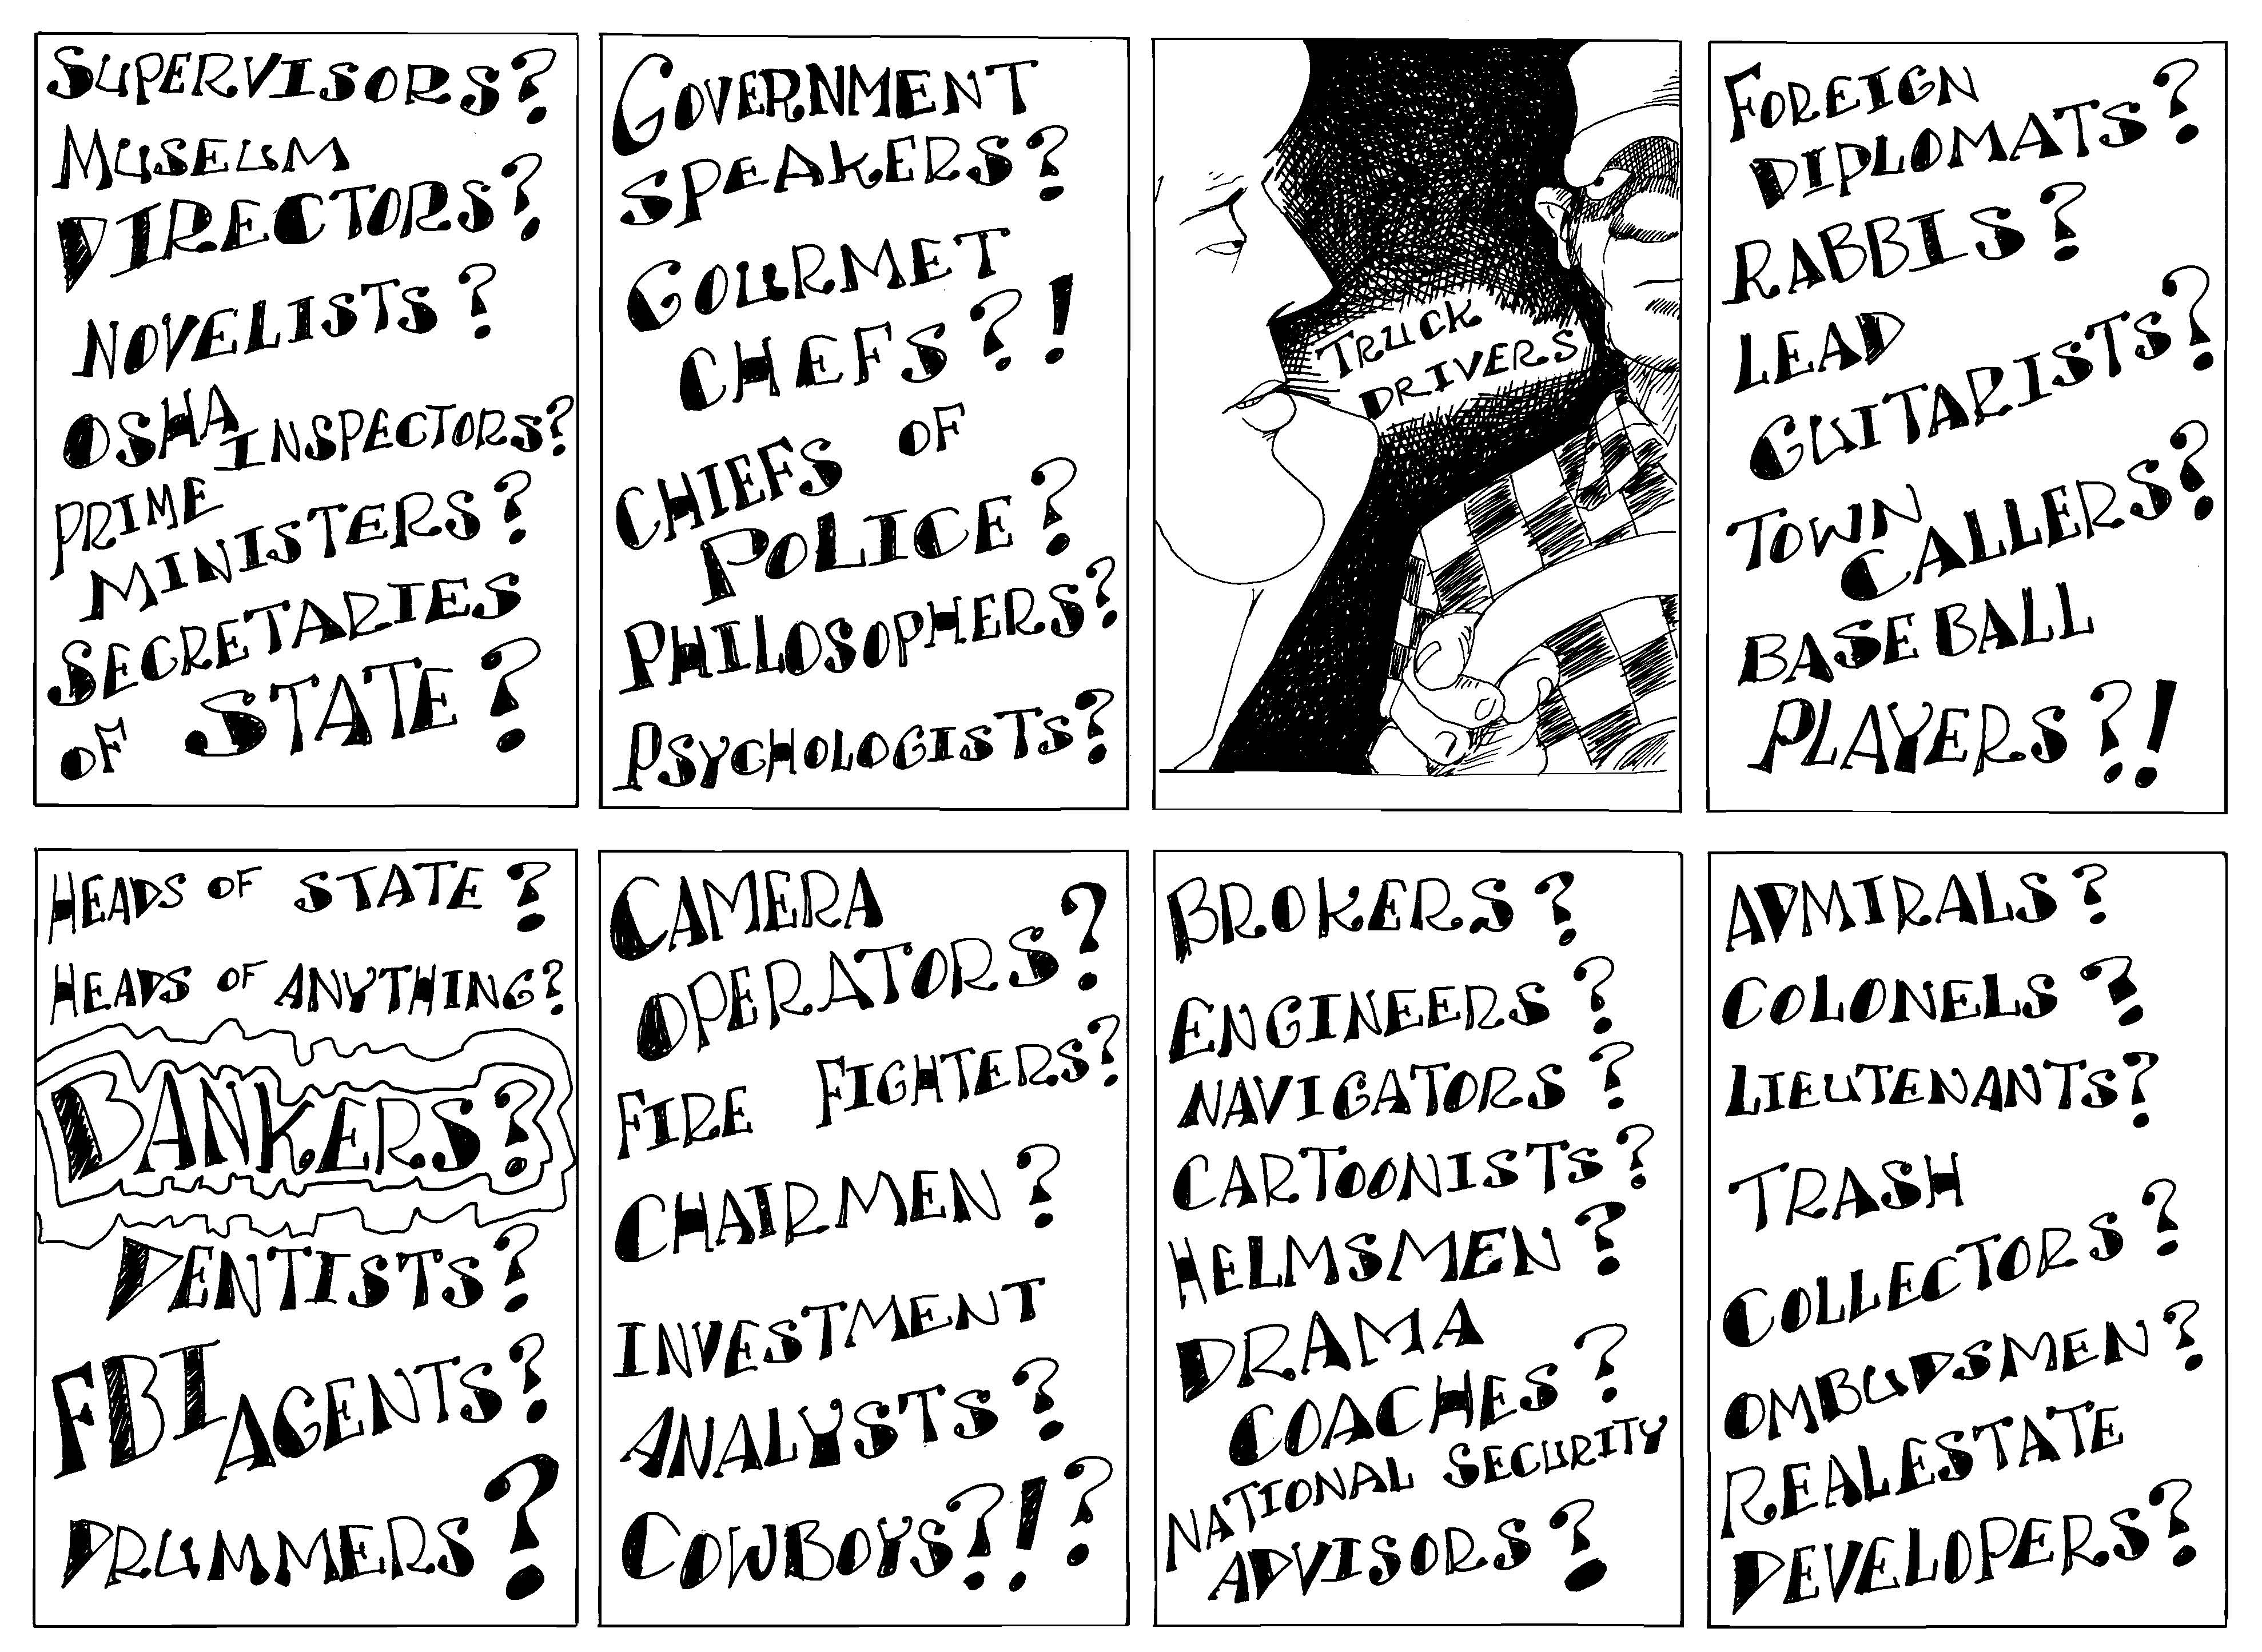 SUPERVISORS?
MUSEUM
DIRECTORS?
NOVELISTS?
OSHA
INSPECTORS?
PRIME
MINISTERS?
SECRETARIES
OF STATE?
GOVERNMENT
SPEAKERS?
GOURMET
CHEFS?!
CHIEFS OF
POLICE?
PHILOSOPHERS?
PSYCHOLOGISTS?
TRUCK
DRIVERS
FOREIGN
DIPLOMATS?
RABBIS?
LEAD
GUITARISTS?
TOWN
CALLERS?
BASEBALL
PLAYERS?!
HEADS OF STATE?
HEADS OF ANYTHING?
BANKERS?
DENTISTS?
FBI
AGENTS?
DRUMMERS?
CAMERA
OPERATORS?
FIRE FIGHTERS?
CHAIRMEN?
INVESTMENT
ANALYSTS?
COWBOYS?!?
BROKERS?
ENGINEERS?
NAVIGATORS?
CARTOONISTS?
HELMSMEN?
DRAMA
COACHES?
NATIONAL SECURITY
ADVISORS?
ADMIRALS?
COLONELS?
LIEUTENANTS?
TRASH
COLLECTORS?
OMBUDSMEN?
REALESTATE
DEVELOPERS?